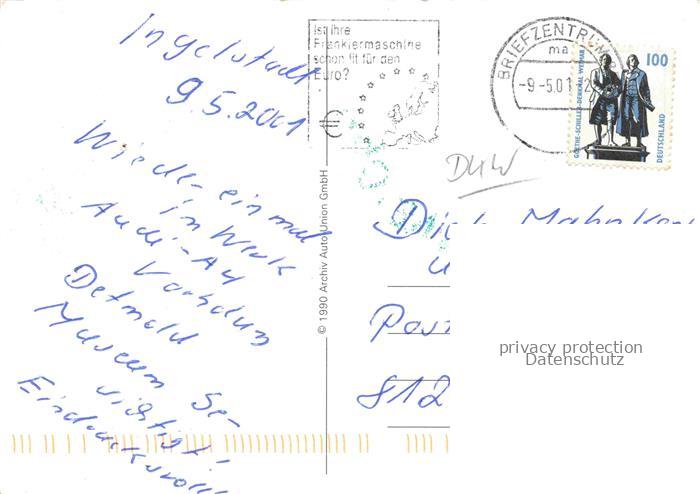 Ingolstadt
9.5.2001
Wieder einmal
im Werk
Audi-AU
Detmold
Museum Be-
sichtigt!
Eindrucksvoll!
Ist ihre
Frankiermaschine
schon fit für den
Euro?
€
BRIEFZENTRUM
ma
-9.-5.01
100
GOETHE-SCHILLER-DENKMAL WEIMAR
DEUTSCHLAND
DKW
© 1990 Archiv Auto Union GmbH
Post
812
privacy protection
Datenschutz